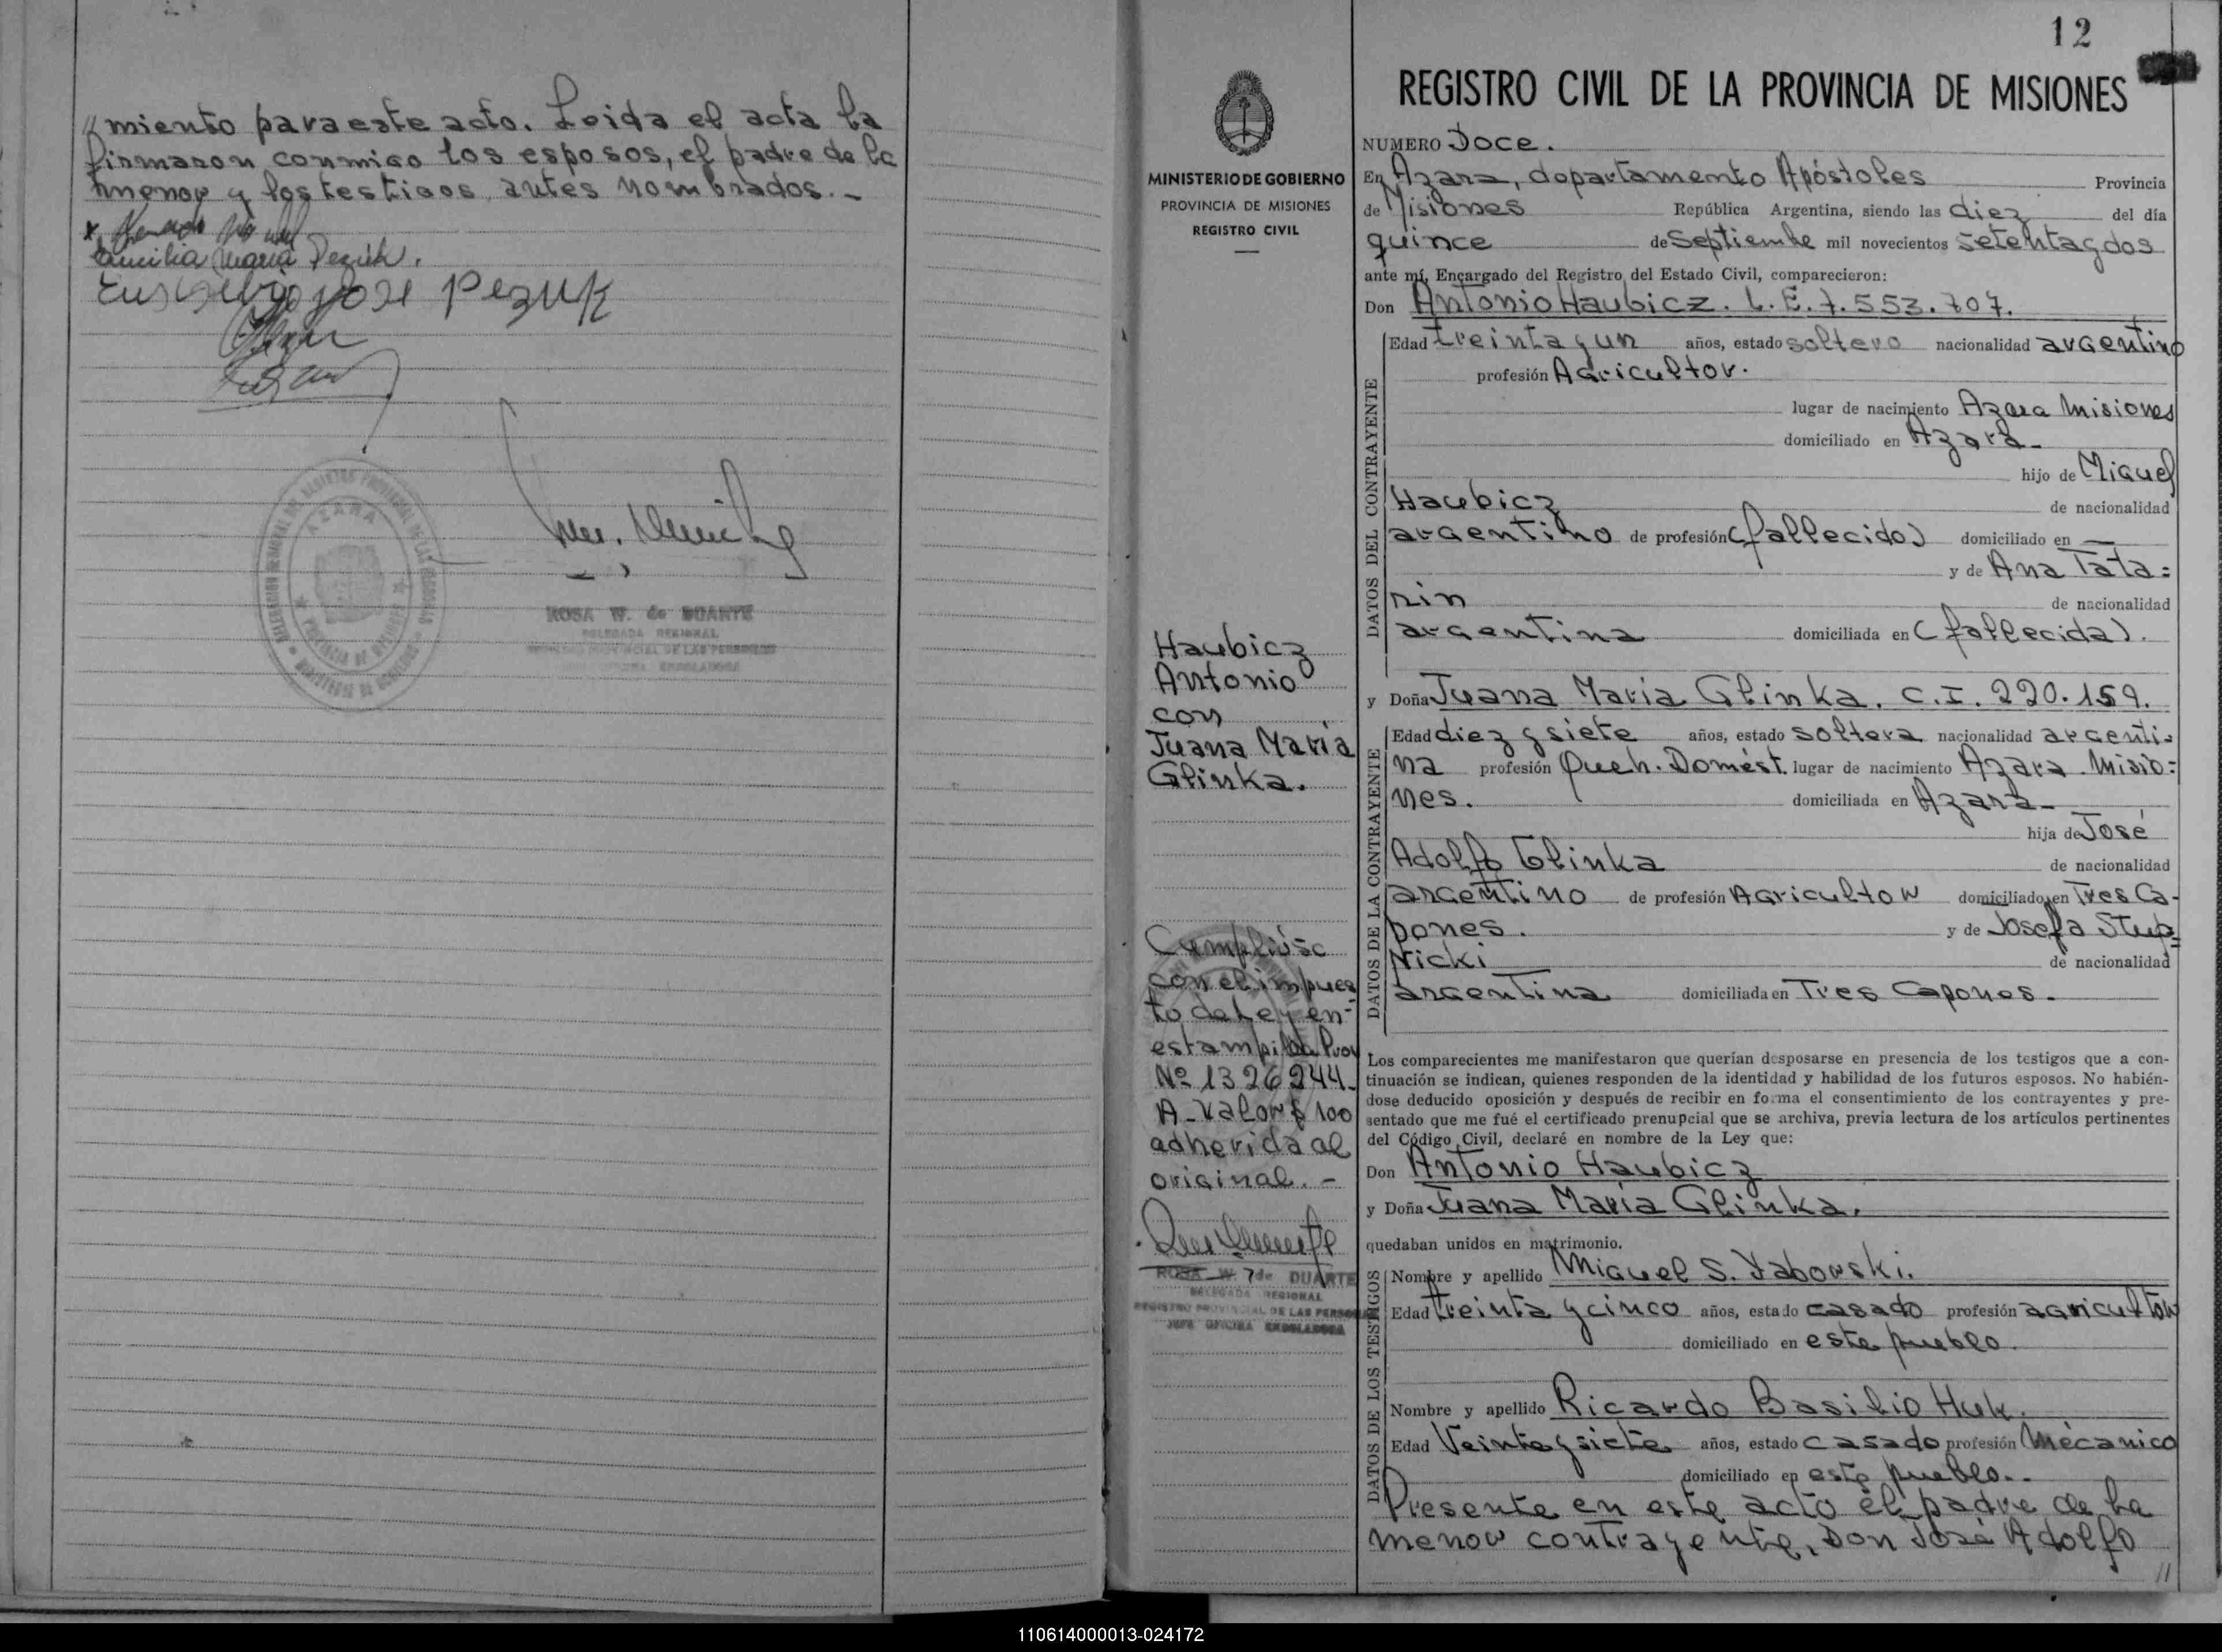 miento para este acto. Leida el acta la
firmaron conmigo los esposos, el padre de la
menor y los testigos antes nombrados.-
Emilia Maria Pezuk.
Eusebio José Pezuk
AZARA
ROSA W. de DUARTE
DELEGADA REGIONAL
REGISTRO PROVINCIAL DE LAS PERSONAS
12
MINISTERIO DE GOBIERNO
PROVINCIA DE MISIONES
REGISTRO CIVIL
Haubicz
Antonio
con
Juana María
Glinka.
Cumplióse
con el impues
to de Ley en-
estampilla Prov
Nº 1326244-
A-Valor $ 100
adherida al
original.-
ROSA W. de DUARTE
DELEGADA REGIONAL
REGISTRO PROVINCIAL DE LAS PERSONAS
JEFE OFICINA ENROLADORA
REGISTRO CIVIL DE LA PROVINCIA DE MISIONES
NUMERO Doce.
En Azara, departamento Apóstoles Provincia
de Misiones República Argentina, siendo las diez del día
quince de Septiembe mil novecientos setenta y dos
ante mí, Encargado del Registro del Estado Civil, comparecieron:
Don Antonio Haubicz. L.E. 7.553.707.
DATOS DEL CONTRAYENTE
Edad treinta y un años, estado soltero nacionalidad argentino
profesión Agricultor.
lugar de nacimiento Azara Misiones
domiciliado en Azara-
hijo de Miguel
Haubicz de nacionalidad
argentino de profesión (fallecido) domiciliado en —
y de Ana Tata=
rin de nacionalidad
argentina domiciliada en (fallecida).
y Doña Juana María Glinka. C.I. 220.159.
DATOS DE LA CONTRAYENTE
Edad diez y siete años, estado soltera nacionalidad argenti=
na profesión Queh. Domést. lugar de nacimiento Azara Misio=
nes. domiciliada en Azara-
hija de José
Adolfo Glinka de nacionalidad
argentino de profesión Agricultor domiciliado en Tres Ca-
pones. y de Josefa Stup=
nicki de nacionalidad
argentina domiciliada en Tres Capones.
Los comparecientes me manifestaron que querían desposarse en presencia de los testigos que a con-
tinuación se indican, quienes responden de la identidad y habilidad de los futuros esposos. No habién-
dose deducido oposición y después de recibir en forma el consentimiento de los contrayentes y pre-
sentado que me fué el certificado prenupcial que se archiva, previa lectura de los artículos pertinentes
del Código Civil, declaré en nombre de la Ley que:
Don Antonio Haubicz
y Doña Juana María Glinka.
quedaban unidos en matrimonio.
DATOS DE LOS TESTIGOS
Nombre y apellido Miguel S. Yabowski.
Edad treinta y cinco años, estado casado profesión agricultor
domiciliado en este pueblo.
Nombre y apellido Ricardo Basilio Huk.
Edad Veinte y siete años, estado casado profesión Mécanico
domiciliado en este pueblo..
Presente en este acto el padre de la
menor contrayente, Don José Adolfo
110614000013-024172